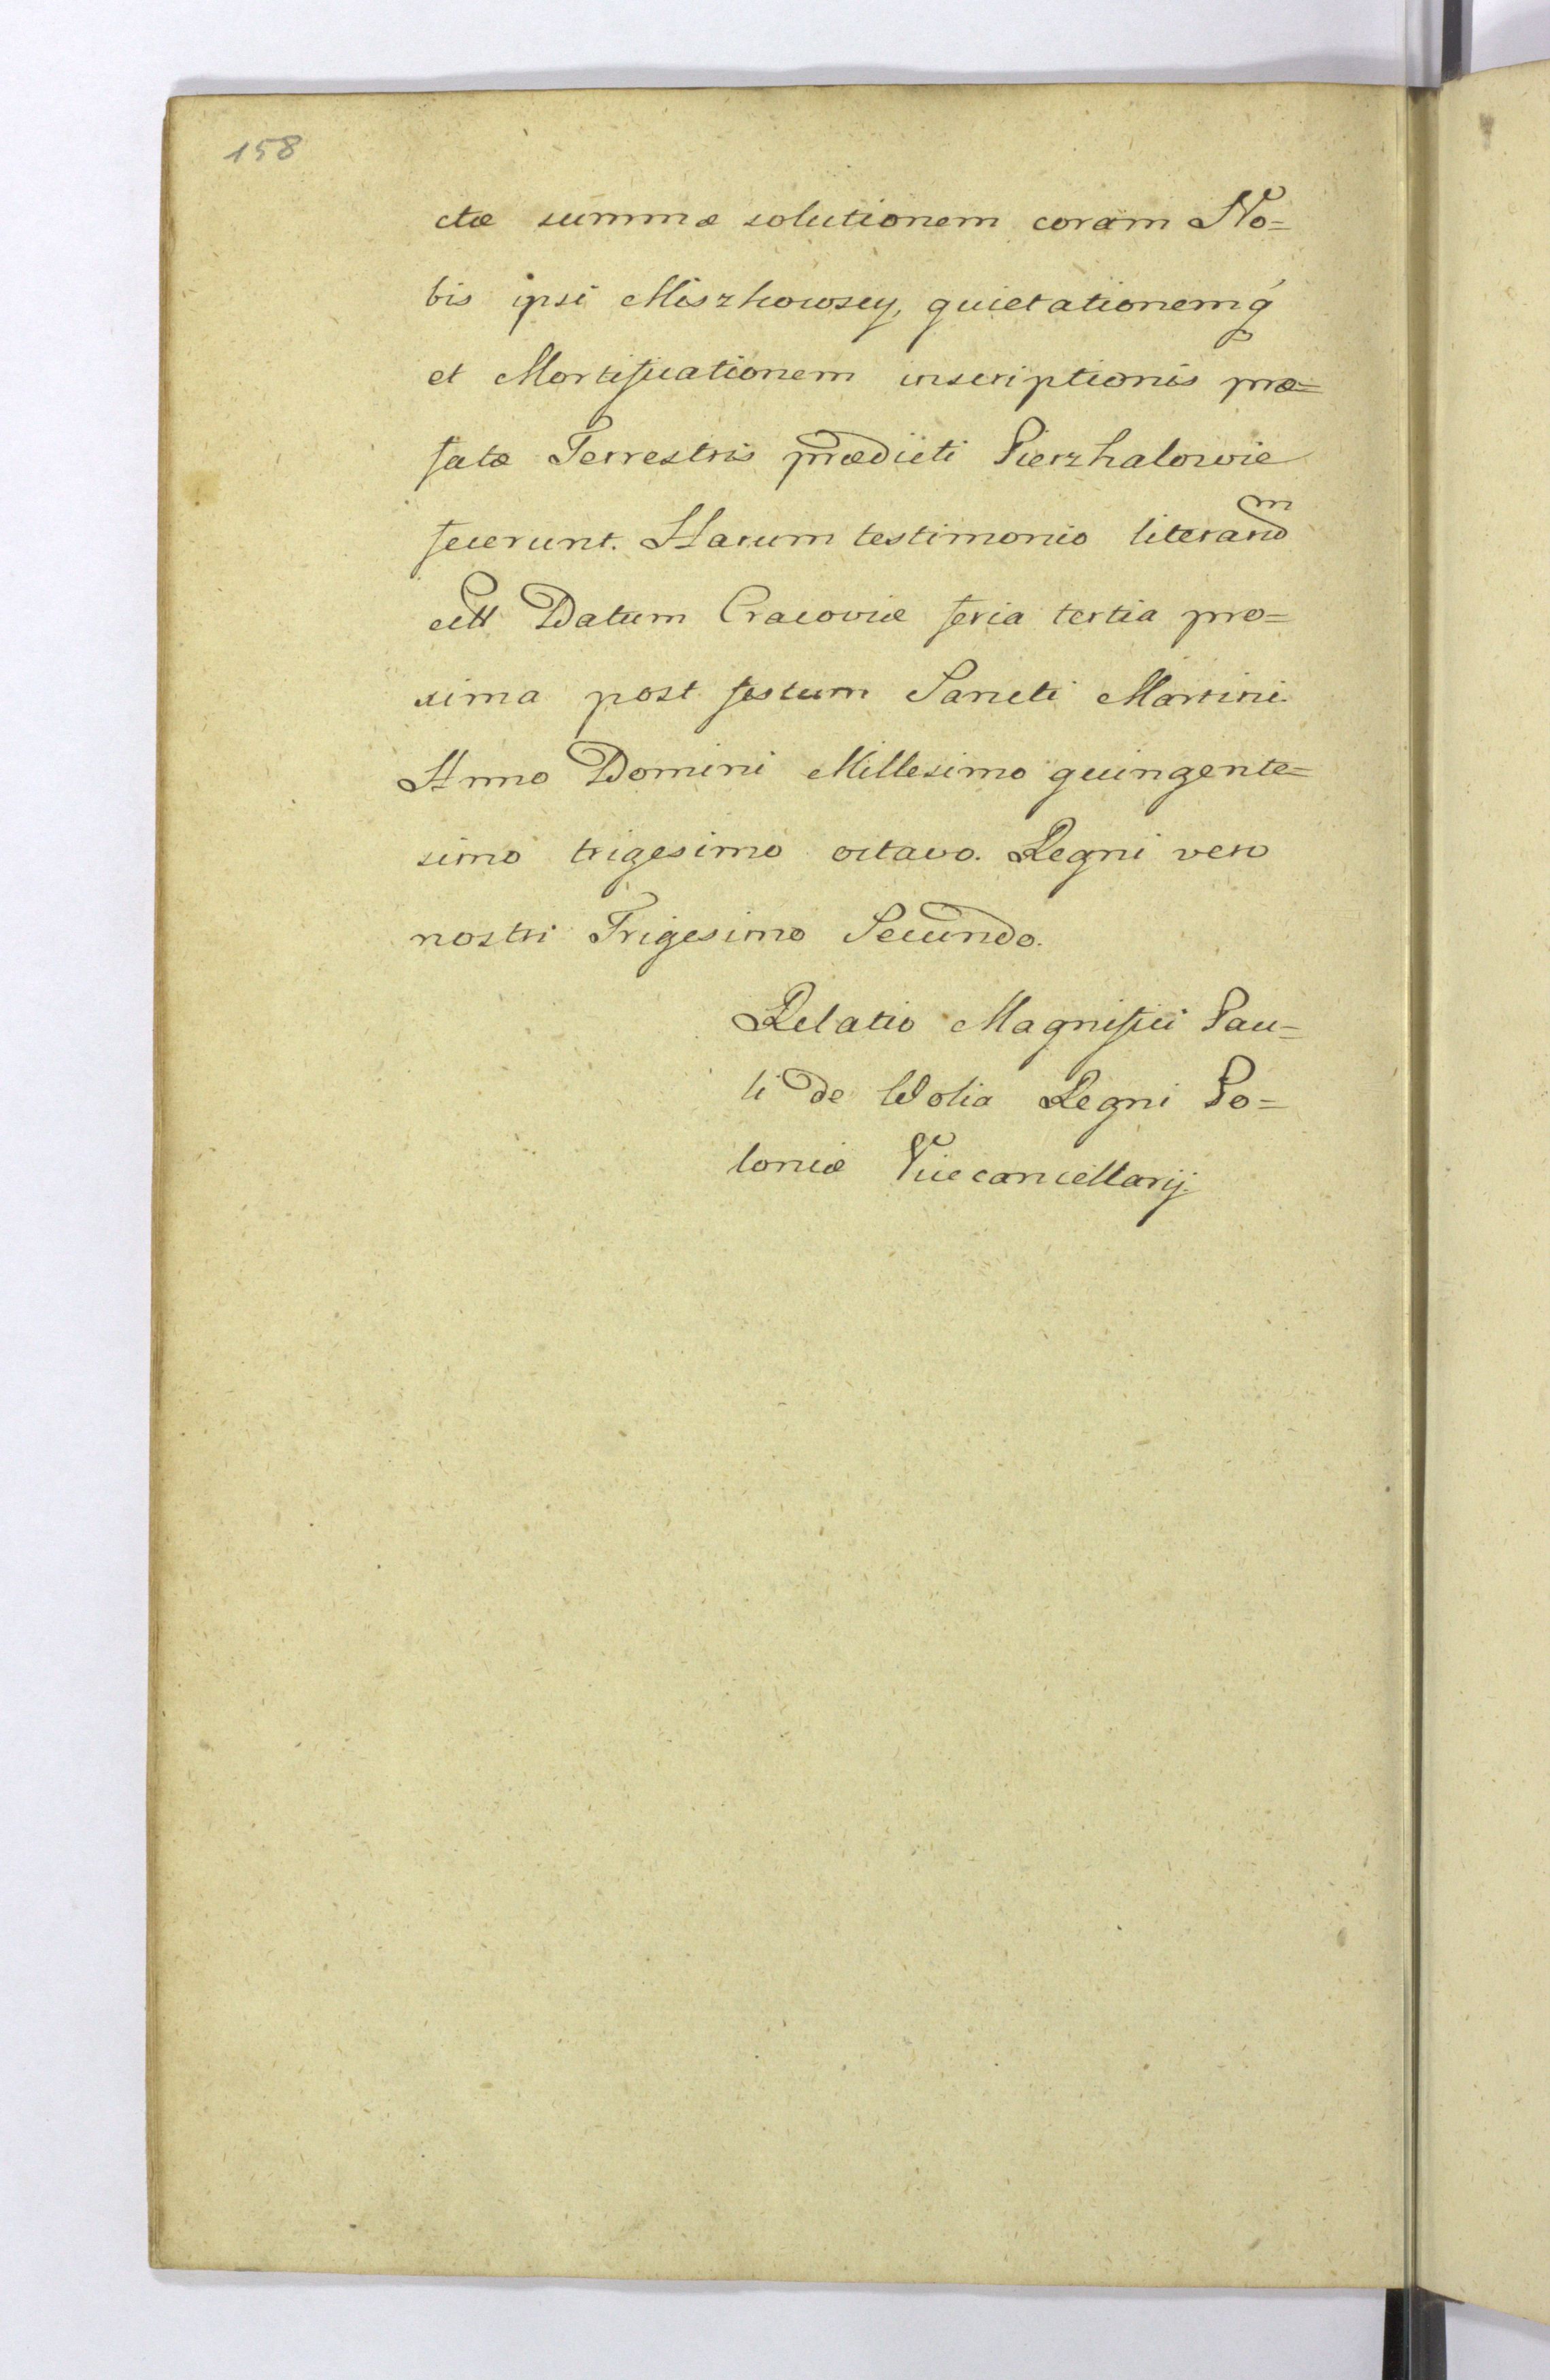 158
ctæ summæ solutionem coram No=
bis ipsi Miszkowscy, quietationemq́
et Mortificationem inscriptionis præ=
fatæ Terrestris prædicti Pierzhalowie
fecerunt. Harum testimonio literarum
ett Datum Cracoviæ feria tertia pro=
xima post festum Sancti Martini
Anno Domini Millesimo quingente=
simo trigesimo octavo. Regni vero
nostri Trigesimo Secundo.
Relatio Magnifici Pau=
li de Wolia Regni Po=
loniæ Vicecancellarij.